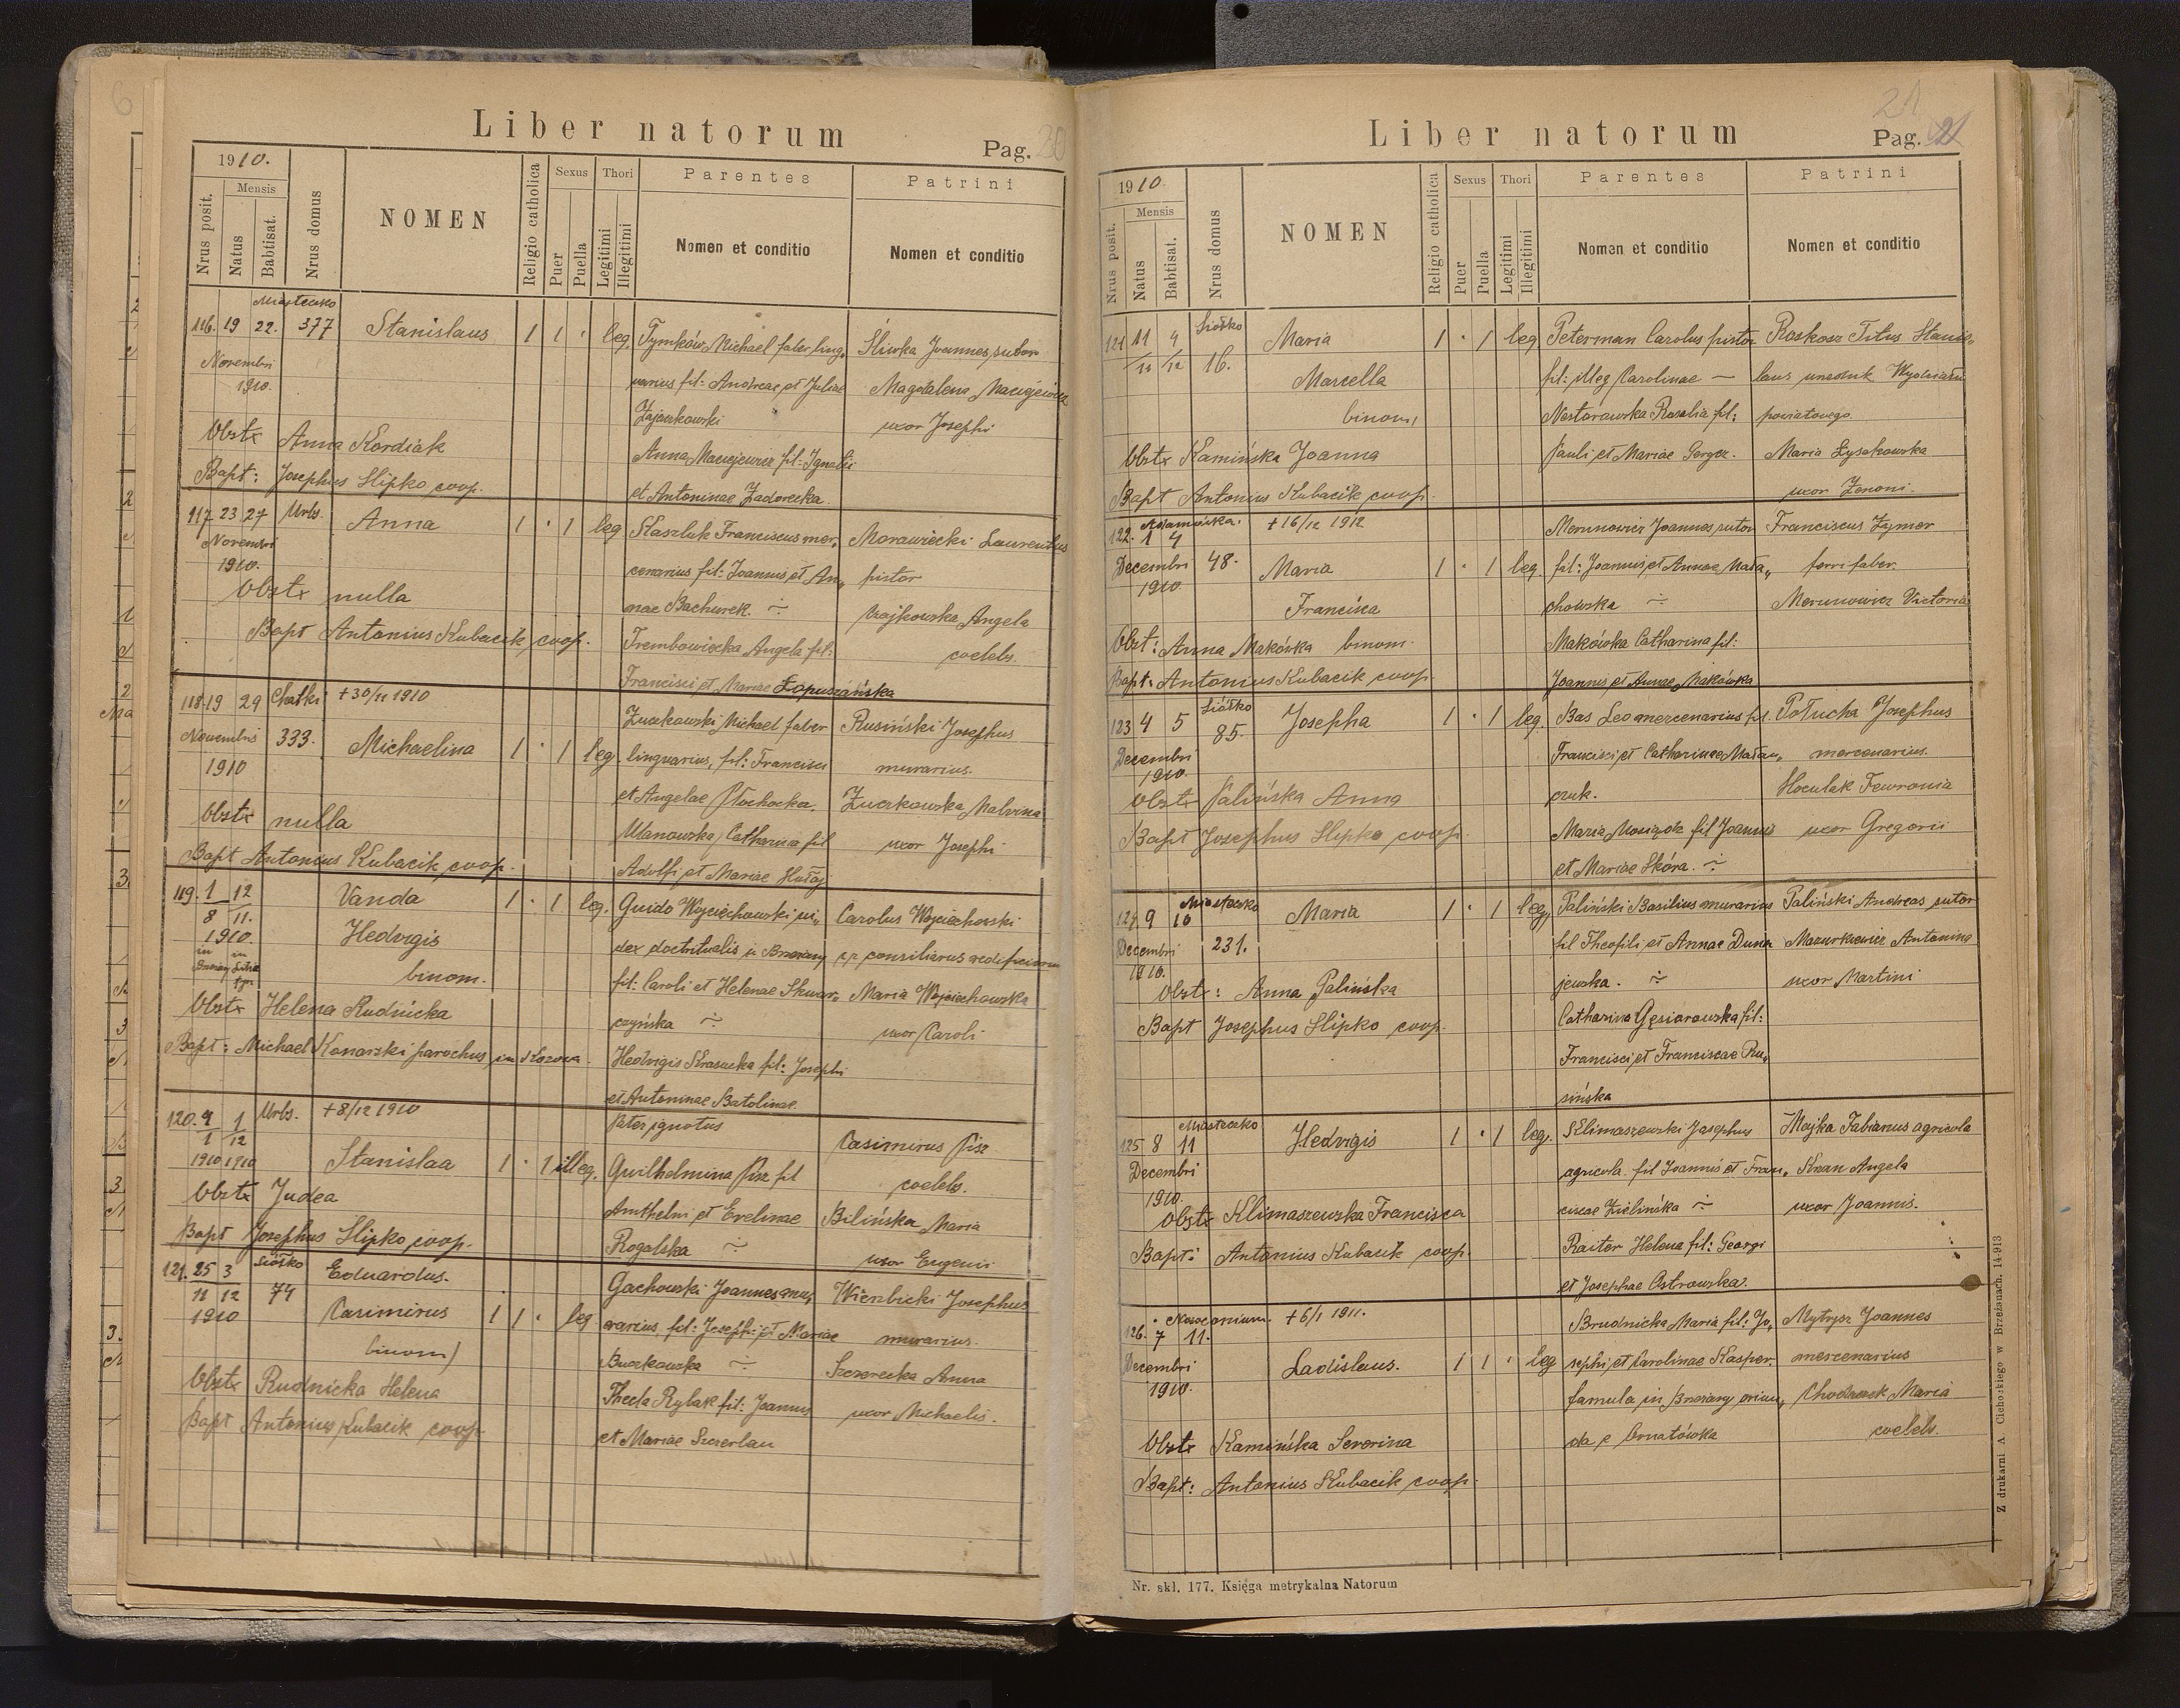 Liber natorum
Pag. 20
1910.
Nrus posit.
Mensis
Natus
Babtisat.
Nrus domus
NOMEN
Religio catholica
Sexus
Puer
Puella
Thori
Legitimi
Illegitimi
Parentes
Nomen et conditio
Patrini
Nomen et conditio
Miasteczko
116. 19 22. 377 Stanislaus 1 1 · leg. Tymków Michael faber ling, Śliwka Joannes, sutor
Novembri warius fil: Andreae et Juliae Magdalena Maciejewicz
1910. Zajączkowski uxor Josephi
Obstx Anna Kordiak Anna Maciejewicz fil: Ignatii
Bapt: Josephus Slipko coop. et Antoninae Zadorecka.
117 23 27 Urbs. Anna 1 · 1 leg Staszluk Franciscus mer, Morawiecki Laurentius
Novembri cenarius fil: Joannis et An, pistor
1910.
Obstx nulla nae Bachurek ÷ Czajkowska Angela
Bapt Antonius Kubacik, coop. Trembowiecka Angela fil: coelebs.
Francisci et Mariae Łopuszańska
118. 19 29 Chatki + 30/11 1910 Zuczkowski Michael faber Rusiński Josephus
Novembris 333. Michaelina 1 · 1 leg. lingvarius, fil: Francisci murarius.
1910 et Angelae Płochocka. Zuczkowska Malvina
Obstx nulla Ulanowska Catharina fil uxor Josephi
Bapt Antonius Kubacik coop. Adolfi et Mariae Hułaj
119. 1/8 12/11. Vanda 1 · 1 leg. Guido Wojciechowski ju, Carolus Wojciechowski
1910. Hedvigis dex doctritualis in Brzeżany cr consiliarus aedificiorum
in Brzeżany in
binom. fil: Caroli et Helenae Skwar, Maria Wojciechowska
Obstx Helena Rudnicka czyńska ÷ uxor Caroli
Bapt: Michael Konarski parochus in Kozowa. Hedvigis Krasucka fil: Josephi
et Antoninae Batolinae.
120. 4/1 1/12 Urbs. + 8/12 1910 Pater ignotus
1910 1910 Stanislaa 1 · 1 illeg. Guilhelmina Pisz fil Casimirus Pisz
Obstx Judea coelebs.
Anthelni et Evelinae Bilińska Maria
Bapt Josephus Slipko coop. Rogalska ÷ uxor Eugenii
121. 25/11 3/12 Siółko 74 Eduardus. Gachowski Joannes mu, Wierzbicki Josephus
1910 Casimirus 1 1 · leg rarius fil: Josephi et Mariae murarius.
binom) Buczkowska ÷ Szczerecka Anna
Obstx Rudnicka Helena Thecla Rybak fil: Joannis uxor Michaelis.
Bapt Antonius Kubacik coop. et Mariae Szczerlau
Liber natorum
21
Pag. 21
1910.
Nrus posit.
Mensis
Natus
Babtisat.
Nrus domus
NOMEN
Religio catholica
Sexus
Puer
Puella
Thori
Legitimi
Illegitimi
Parentes
Nomen et conditio
Patrini
Nomen et conditio
121 11/11 4/12 Siółko 16. Maria 1 · 1 leg Peterman Carolus pistor Roskosz Titus Stanis,
Marcella fil: illeg Carolinae — laus Wydziału
binom, Nestorowska Rosalia fil: powiatowego.
Obstx Kamińska Joanna Pauli et Mariae Gerger. Maria Łysakowska
Bapt Antonius Kubacik coop. uxor Zenoni.
Adamówka. + 16/12 1912
122. 1 4 Morunowicz Joannes sutor Franciscus Zymer
Decembri 48. Maria 1 · 1 leg. fil: Joannis et Annae Mała, ferri faber.
1910 Francisca chowska ÷ Morunowicz Victoria
Obst: Anna Makówka binom. Makówka Catharina fil:
Bapt: Antonius Kubacik coop. Joannis et Annae Makówka
123 4 5 Siółko 85. Josepha 1 · 1 leg. Bas Leo mercenarius fil. Połucha Josephus
Decembri Francisci et Catharinae Matau, mercenarius.
1910.
Obstx Palińska Anna czuk. Hoculak Fewronia
Bapt Josephus Slipko coop. Maria Mosiądz fil Joannis uxor Gregorii
et Mariae Skóra. ÷
Miasteczko
124. 9 10 Maria 1 · 1 leg. Paliński Basilius murarius Paliński Andreas sutor
Decembri 231. fil Theofili et Annae Duna Mazurkiewicz Antonina
1910.
Obstx: Anna Palińska jewska. ÷ uxor Martini
Bapt Josephus Slipko coop. Catharina Gęsiorowska fil:
Francisci et Franciscae Ru,
sińska
Miasteczko
125 8 11 Hedvigis 1 · 1 leg. Klimaszewski Josephus Majka Fabianus agricola
Decembri agricola fil Joannis et Fran, Kran Angela
1910.
Obstx Klimaszewska Francisca ciscae Zielińska ÷ uxor Joannis.
Bapt: Antonius Kubacik coop. Raiter Helena fil: Georgi
et Josephae Ostrowska.
126. 7 11. + 6/1 1911. Brudnicka Maria fil: Jo, Mytrysz Joannes
Decembri Ladislaus. 1 1 · leg sephi et Carolinae Kasper, mercenarius
1910. famula in Brzeżany oriun, Maria
Obstx Kamińska Severina da e coelebs.
Bapt: Antonius Kubacik coop.
Nr. skł. 177. Księga metrykalna Natorum
Z drukarni A Cichockiego w Brzeżanach. 14-913